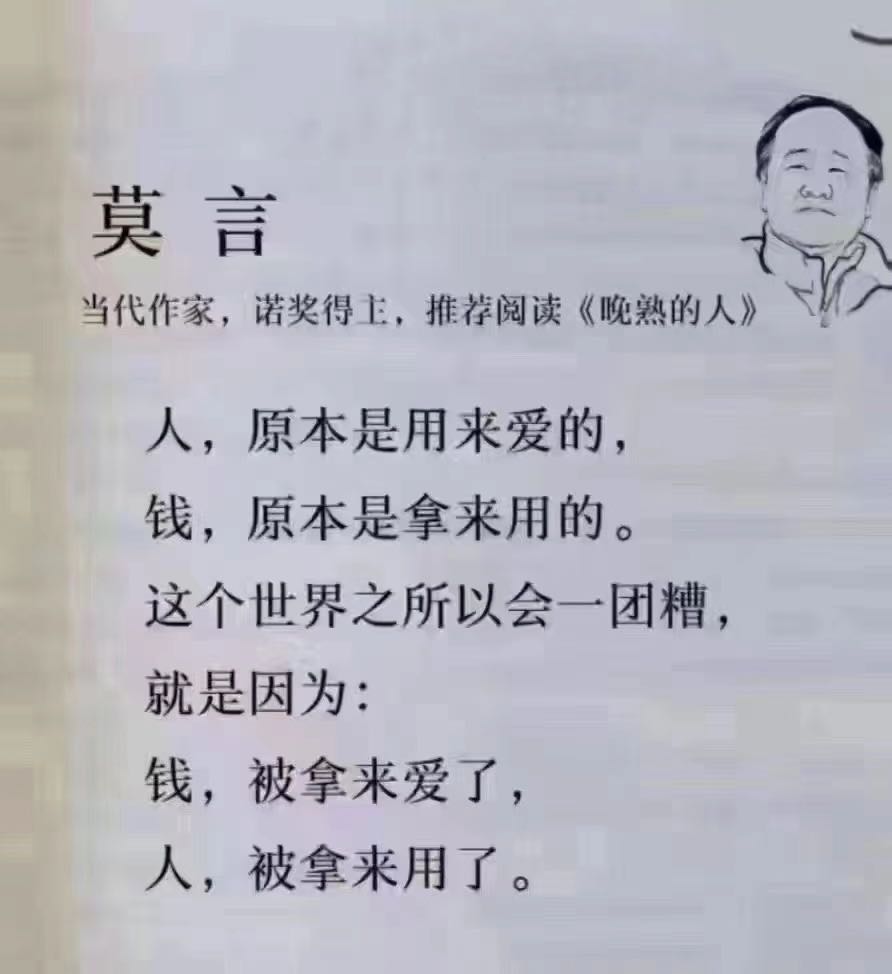 莫言
当代作家，诺奖得主，推荐阅读《晚熟的人》
人，原本是用来爱的，
钱，原本是拿来用的。
这个世界之所以会一团糟，
就是因为：
钱，被拿来爱了，
人，被拿来用了。